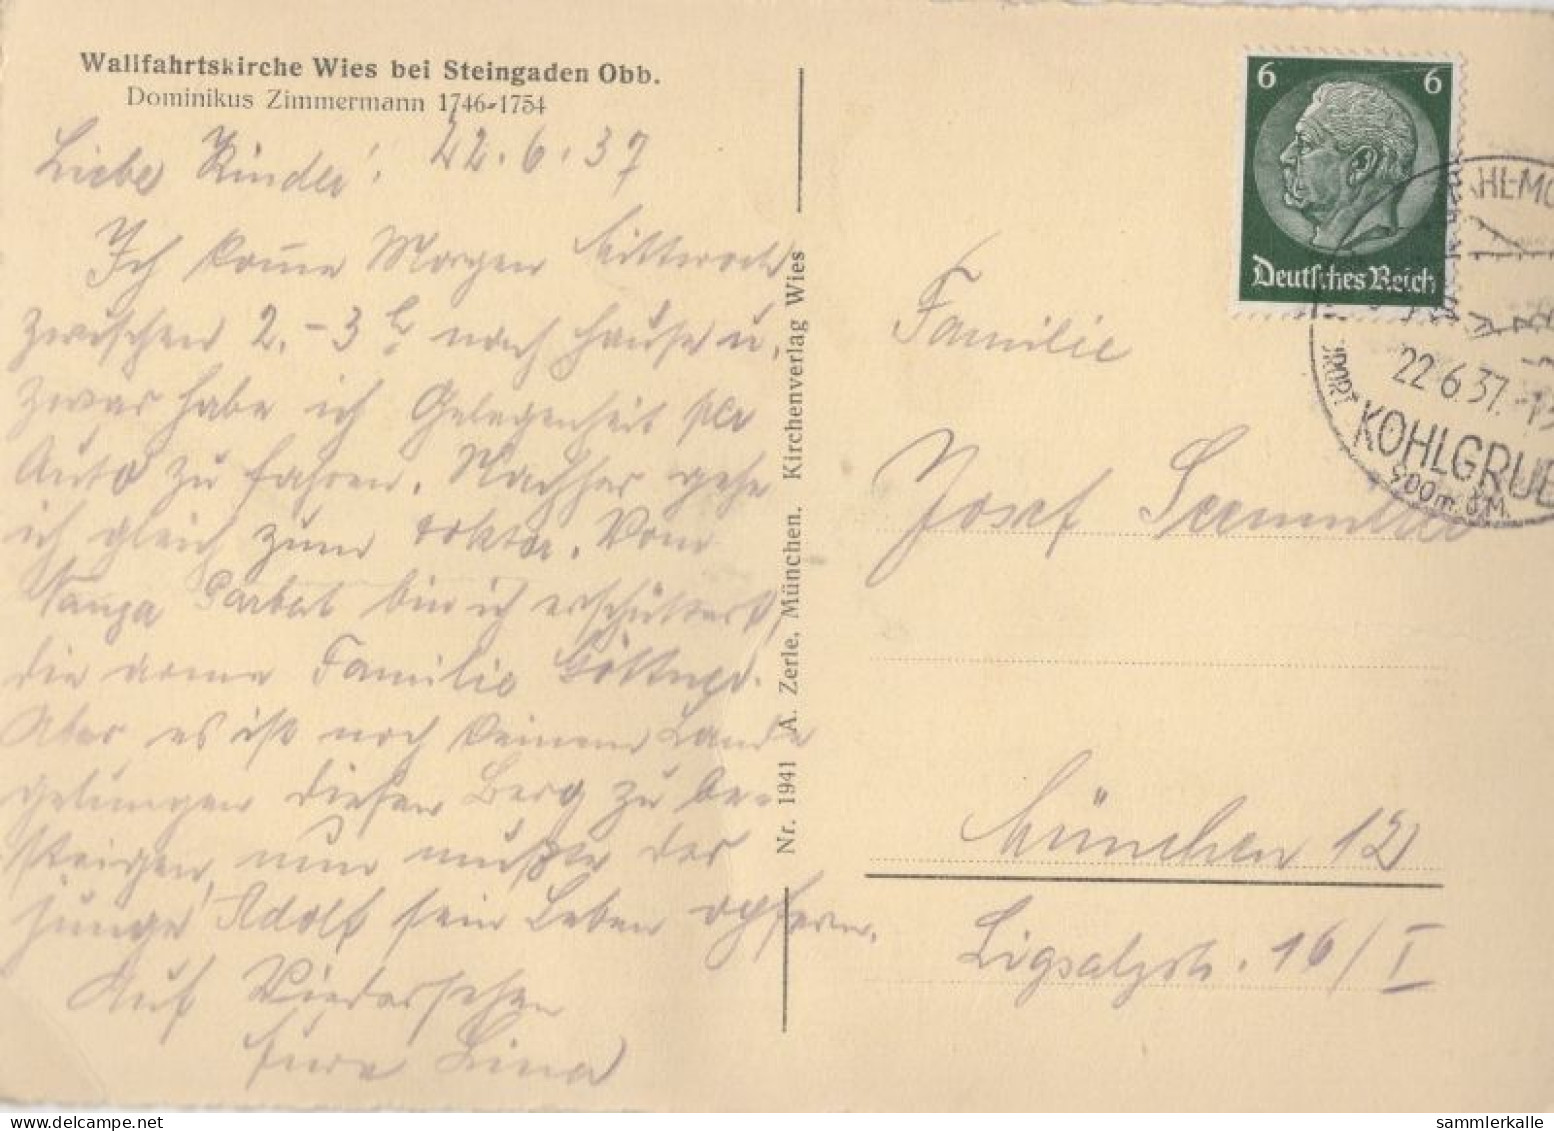 Wallfahrtskirche Wies bei Steingaden Obb.
Dominikus Zimmermann 1746-1754
22.6.37
Liebe Kinder!
Ich komme Morgen Mittwoch
zwischen 2.-3 h nach Hause u.
zwar habe ich Gelegenheit per
Auto zu fahren. Nachher gehe
ich gleich zum Doktor. Vom
Nanga Parbat bin ich erschüttert,
die arme Familie Göttner.
Aber es ist noch keinem Lande
gelungen diesen Berg zu be-
steigen, nun mußte der
junge Adolf sein Leben opfern.
Auf Wiedersehen
Eure Lina
Nr. 1941 A. Zerle, München. Kirchenverlag Wies
6 6
Deutsches Reich
22.6.37.-15
KOHLGRUB
900m.ü.M.
Familie
Josef
München 12
Ligsalzstr. 16/I
sammlerkalle